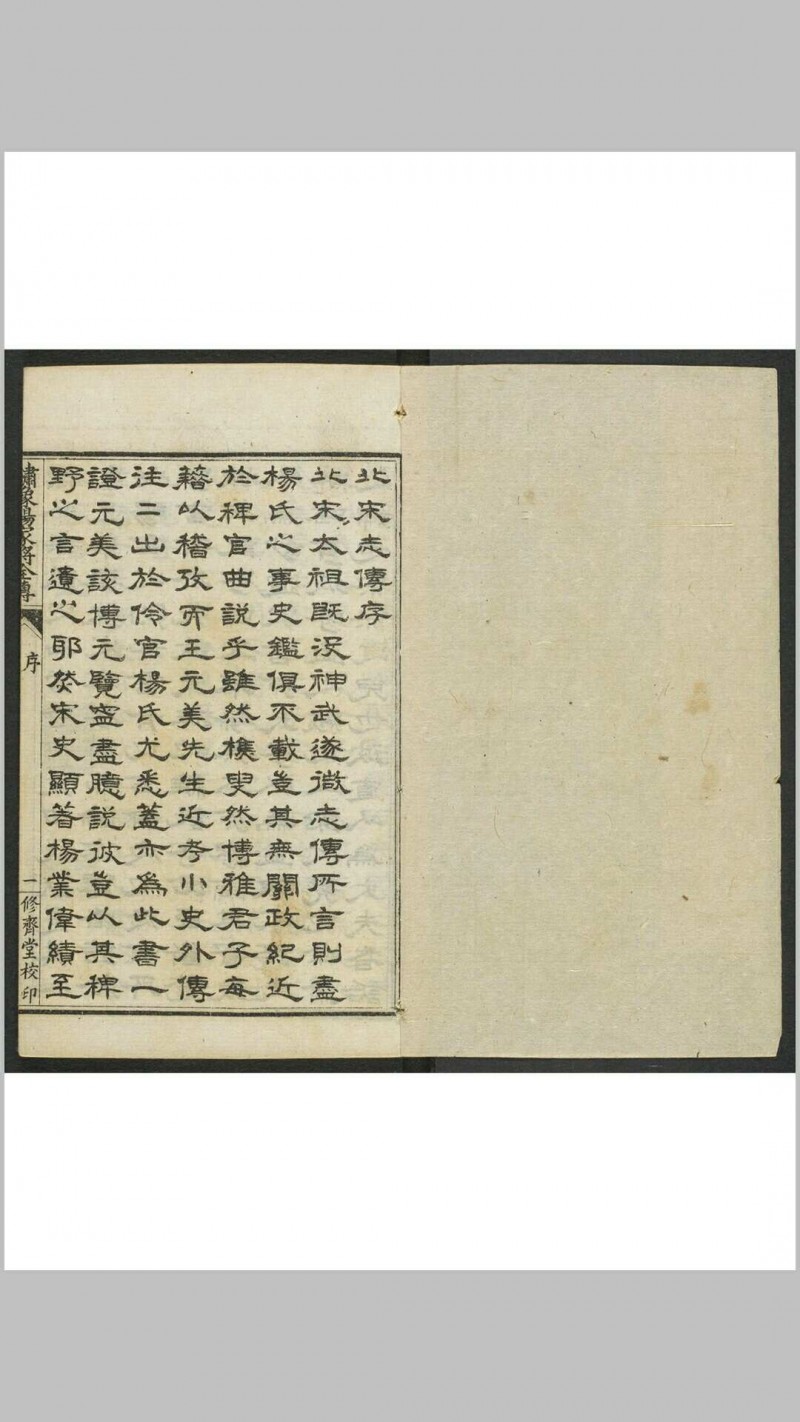 北宋志傳序
北宋太祖既没神武遂微志傳所言則盡
楊氏之事史鑑俱不載豈其無關政紀近
於稗官曲説乎雖然樵叟然博雅君子每
籍以稽攷而王元美先生近考小史外傳
往二出於伶官楊氏尤悉蓋亦爲此書一
證元美該博元覽寍盡臆説彼豈以其稗
野之言遺之耶然宋史顯著楊業偉績至
繡像楊家將全傳
序
一
修齊堂校印